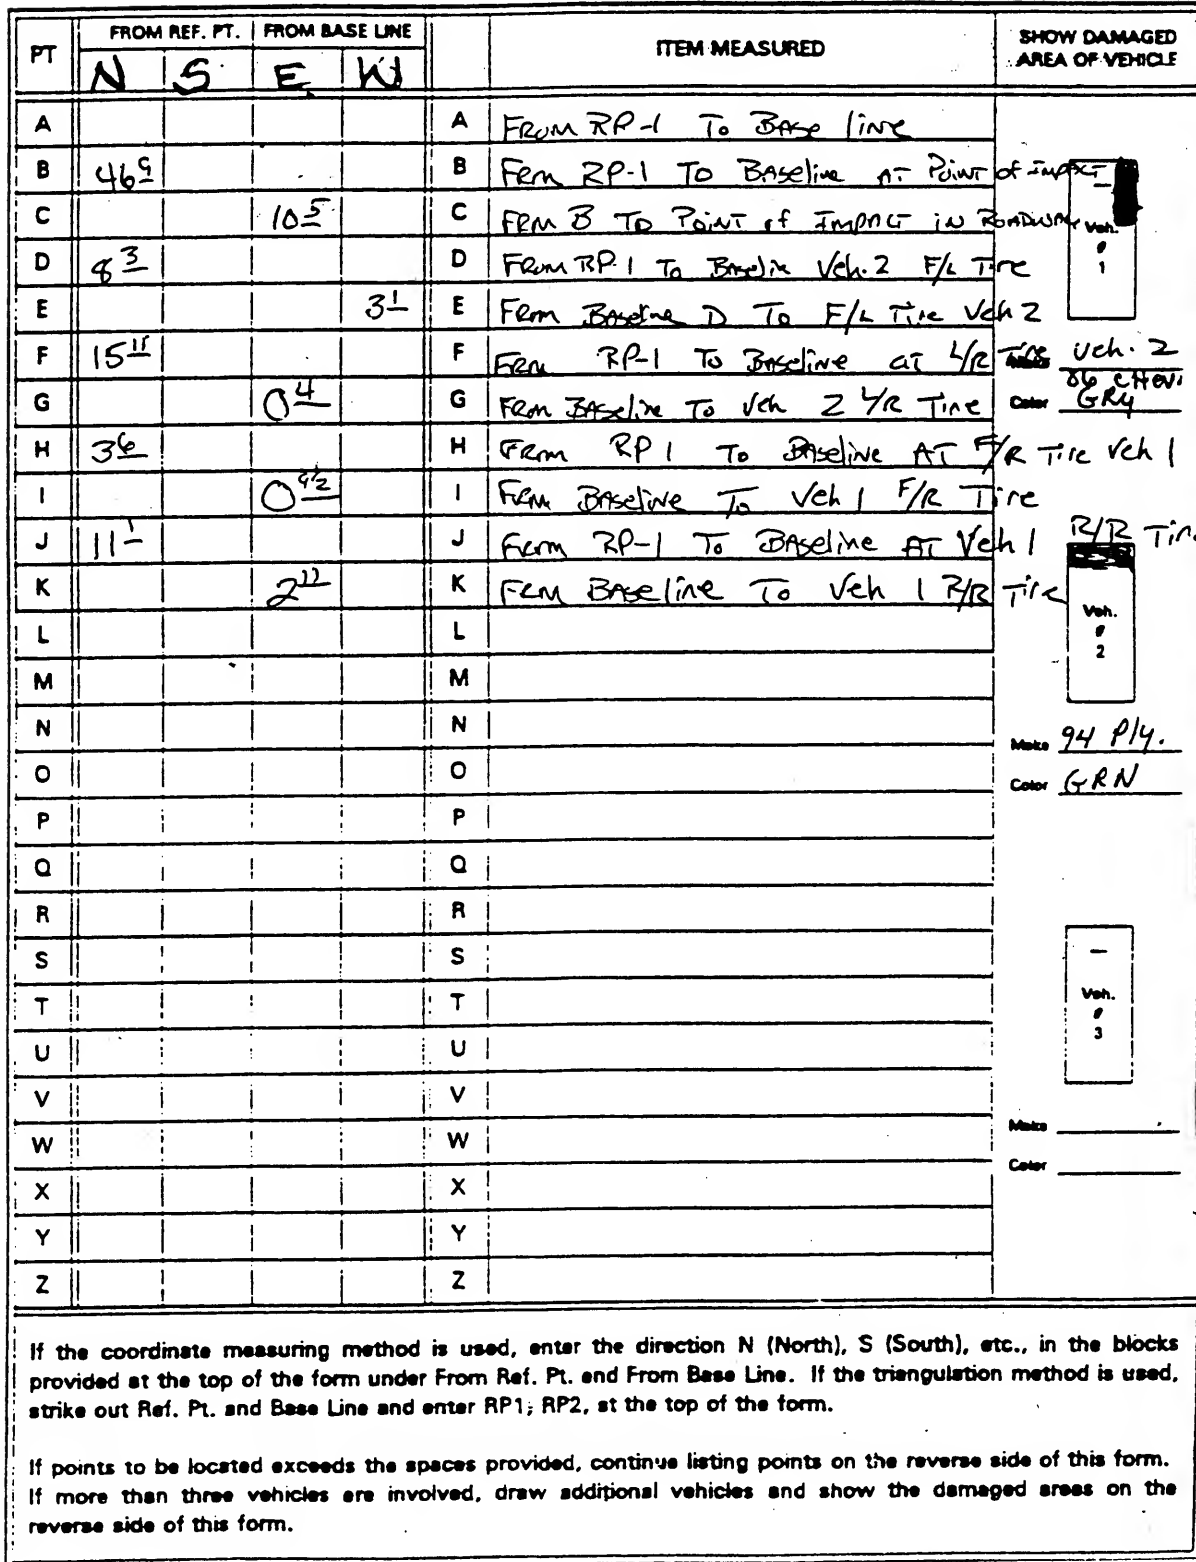 PT FROM REF. PT. FROM BASE LINE ITEM MEASURED SHOW DAMAGED AREA OF VEHICLE
N S E W
A A FROM RP-1 To BASe line
B 46 B FROM RP-1 TO BASeline AT POINT of IMPACT
C 10 5 C FROM B TO POINT of IMPACT iN ROADWAY
Veh. # 1
D 8 3 D FROM RP-1 To Baselin Veh. 2 F/L Tire
E 3 1 E From Baseline D To F/L Tire Veh 2
F 15 11 F From RP-1 To Baseline at L/R Tire Veh. 2
86 CHEV
G 0 4 G From BASeline To Veh 2 L/R Tire
Color GRY
H 3 6 H From RP 1 To BAseline AT F/R Tire Veh 1
I 0 I From BASeline To Veh 1 F/R Tire
J 11 1 J From RP-1 To BAseline AT Veh 1 R/R Tire
K 2 11 K From BASeline To Veh 1 R/R Tire
Veh. # 2
L L
M M
N N
Make 94 Ply.
O O
Color GRN
P P
Q Q
R R
S S
T T
Veh. # 3
U U
V V
W W
Make
X X
Color
Y Y
Z Z
If the coordinate measuring method is used, enter the direction N (North), S (South), etc., in the blocks
provided at the top of the form under From Ref. Pt. and From Base Line. If the triangulation method is used,
strike out Ref. Pt. and Base Line and enter RP1; RP2, at the top of the form.
If points to be located exceeds the spaces provided, continue listing points on the reverse side of this form.
If more than three vehicles are involved, draw additional vehicles and show the damaged areas on the
reverse side of this form.